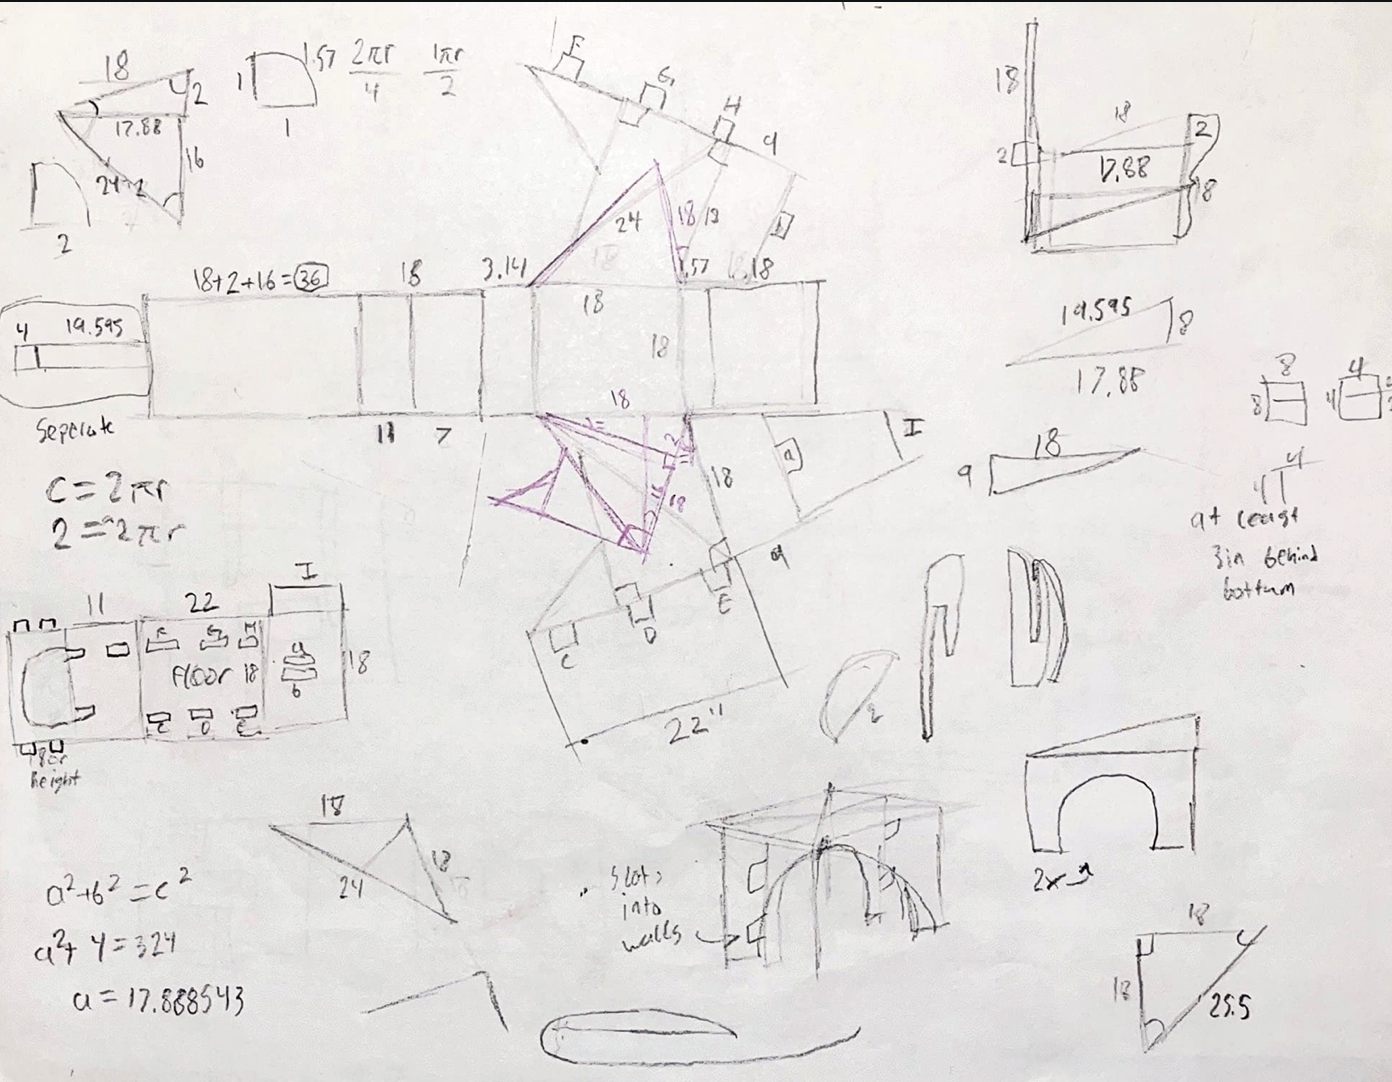 18
2
17.88
16
24.2
2
1
1.57
2πr
4
1πr
2
1
F
G
H
9
24
18
18
18
18+2+16=36
18
3.14
18
18
4
19.595
Seperate
11
7
18
18
18
I
C=2πr
2=2πr
9
C
D
E
22"
I
11
22
Floor 18
a
b
18
C
D
E
height
a²+b²=c²
a²+4=324
a=17.888543
18
18
24
Slots
into
walls
18
18
2
2
17.88
18
19.595
8
17.88
8
8
4
4
18
9
4
at least
3in behind
bottum
2x
18
18
25.5